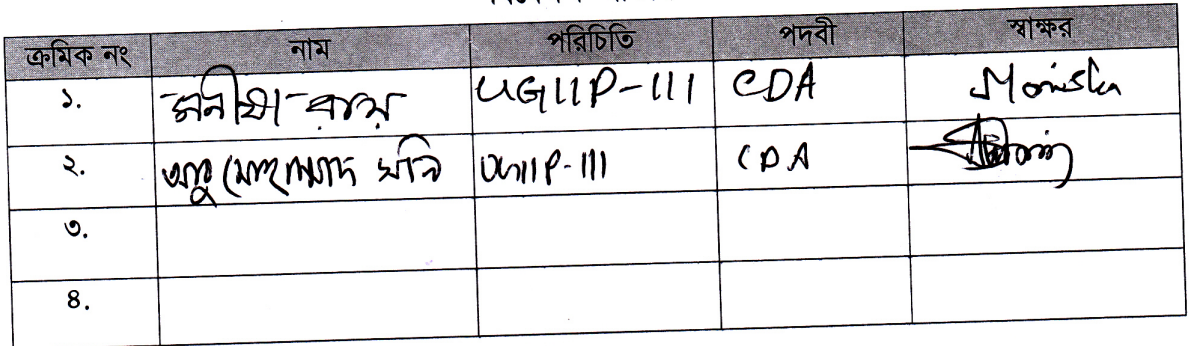 ক্রমিক নং নাম পরিচিতি পদবী স্বাক্ষর
১. মনীষা রায় UGIIP-III CDA Monisha
২. আবু মোহাম্মাদ মনি UGIIP-III CDA
৩.
৪.